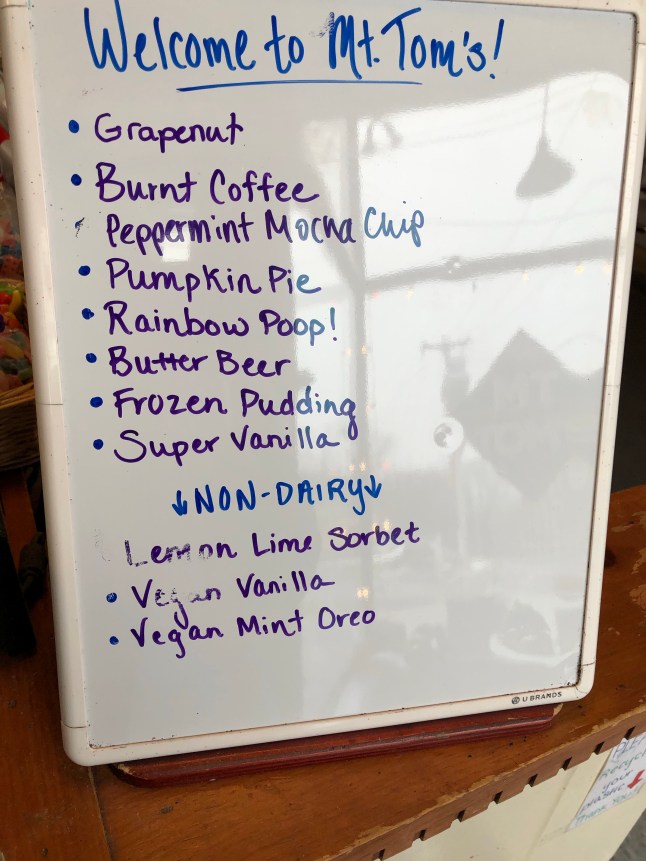 Welcome to Mt. Tom's!
• Grapenut
• Burnt Coffee
Peppermint Mocha Chip
• Pumpkin Pie
• Rainbow Poop!
• Butter Beer
• Frozen Pudding
• Super Vanilla
↓NON-DAIRY↓
Lemon Lime Sorbet
• Vegan Vanilla
• Vegan Mint Oreo
U BRANDS
recycle
your
plastic